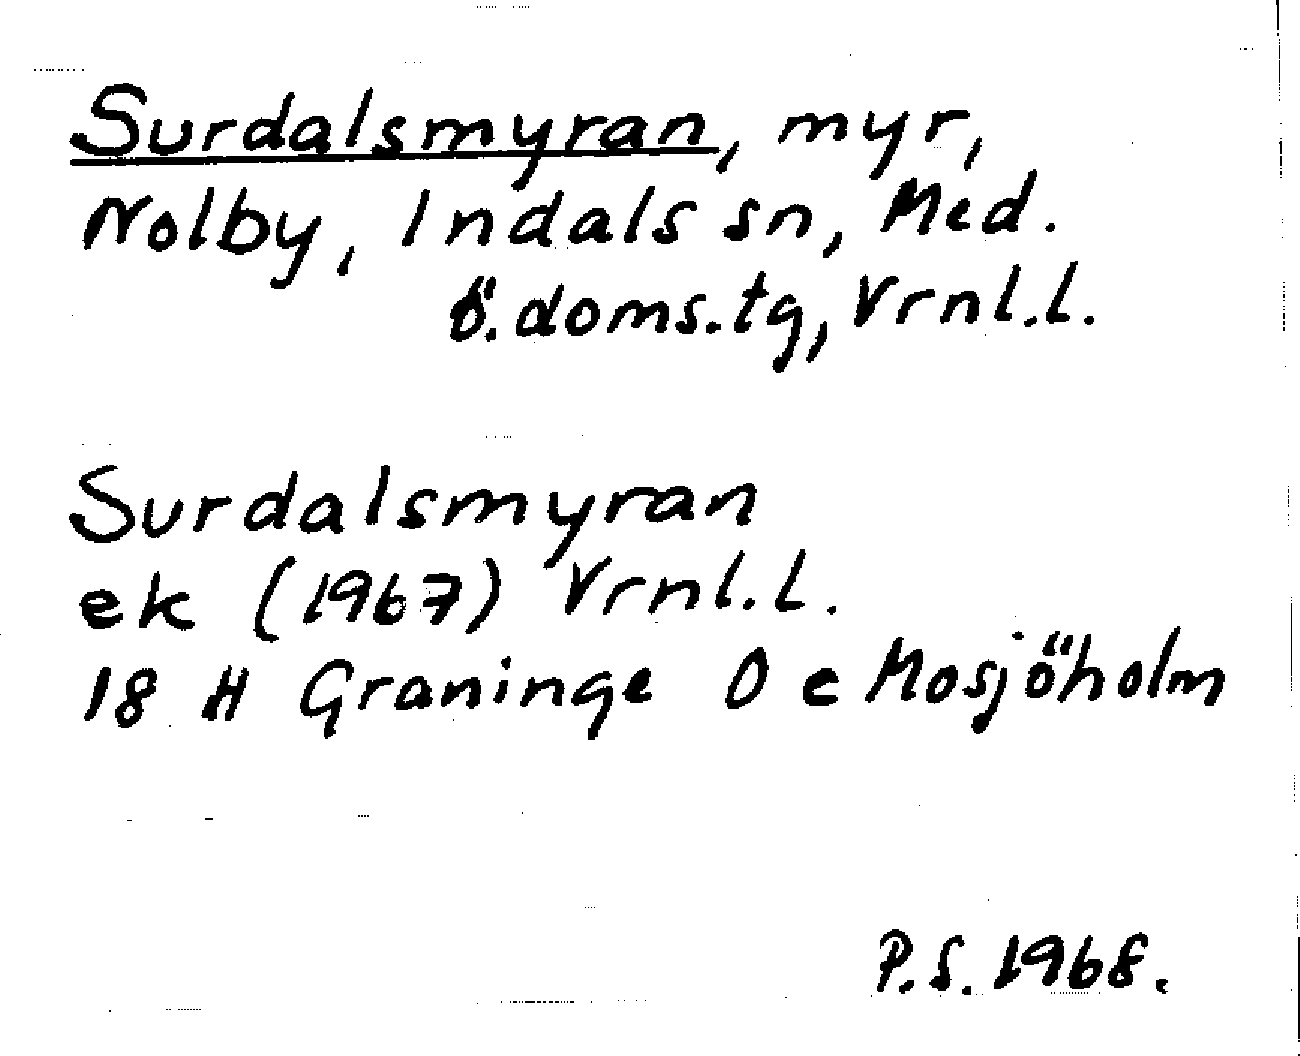 Surdalsmyran, myr,
Nolby, Indals sn, Med.
ö. doms.tg, Vrnl.l.
Surdalsmyran
ek (1967) Vrnl.l.
18 H Graninge 0 c Mosjöholm
P.S. 1968.